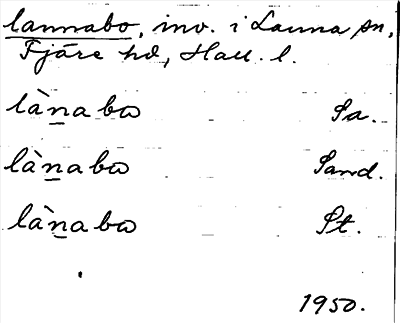 lannabo, inv. i Lanna sn,
Fjäre hd, Hall. l.
lànabω Sa.
lànabω Sand.
lànabω St.
1950.